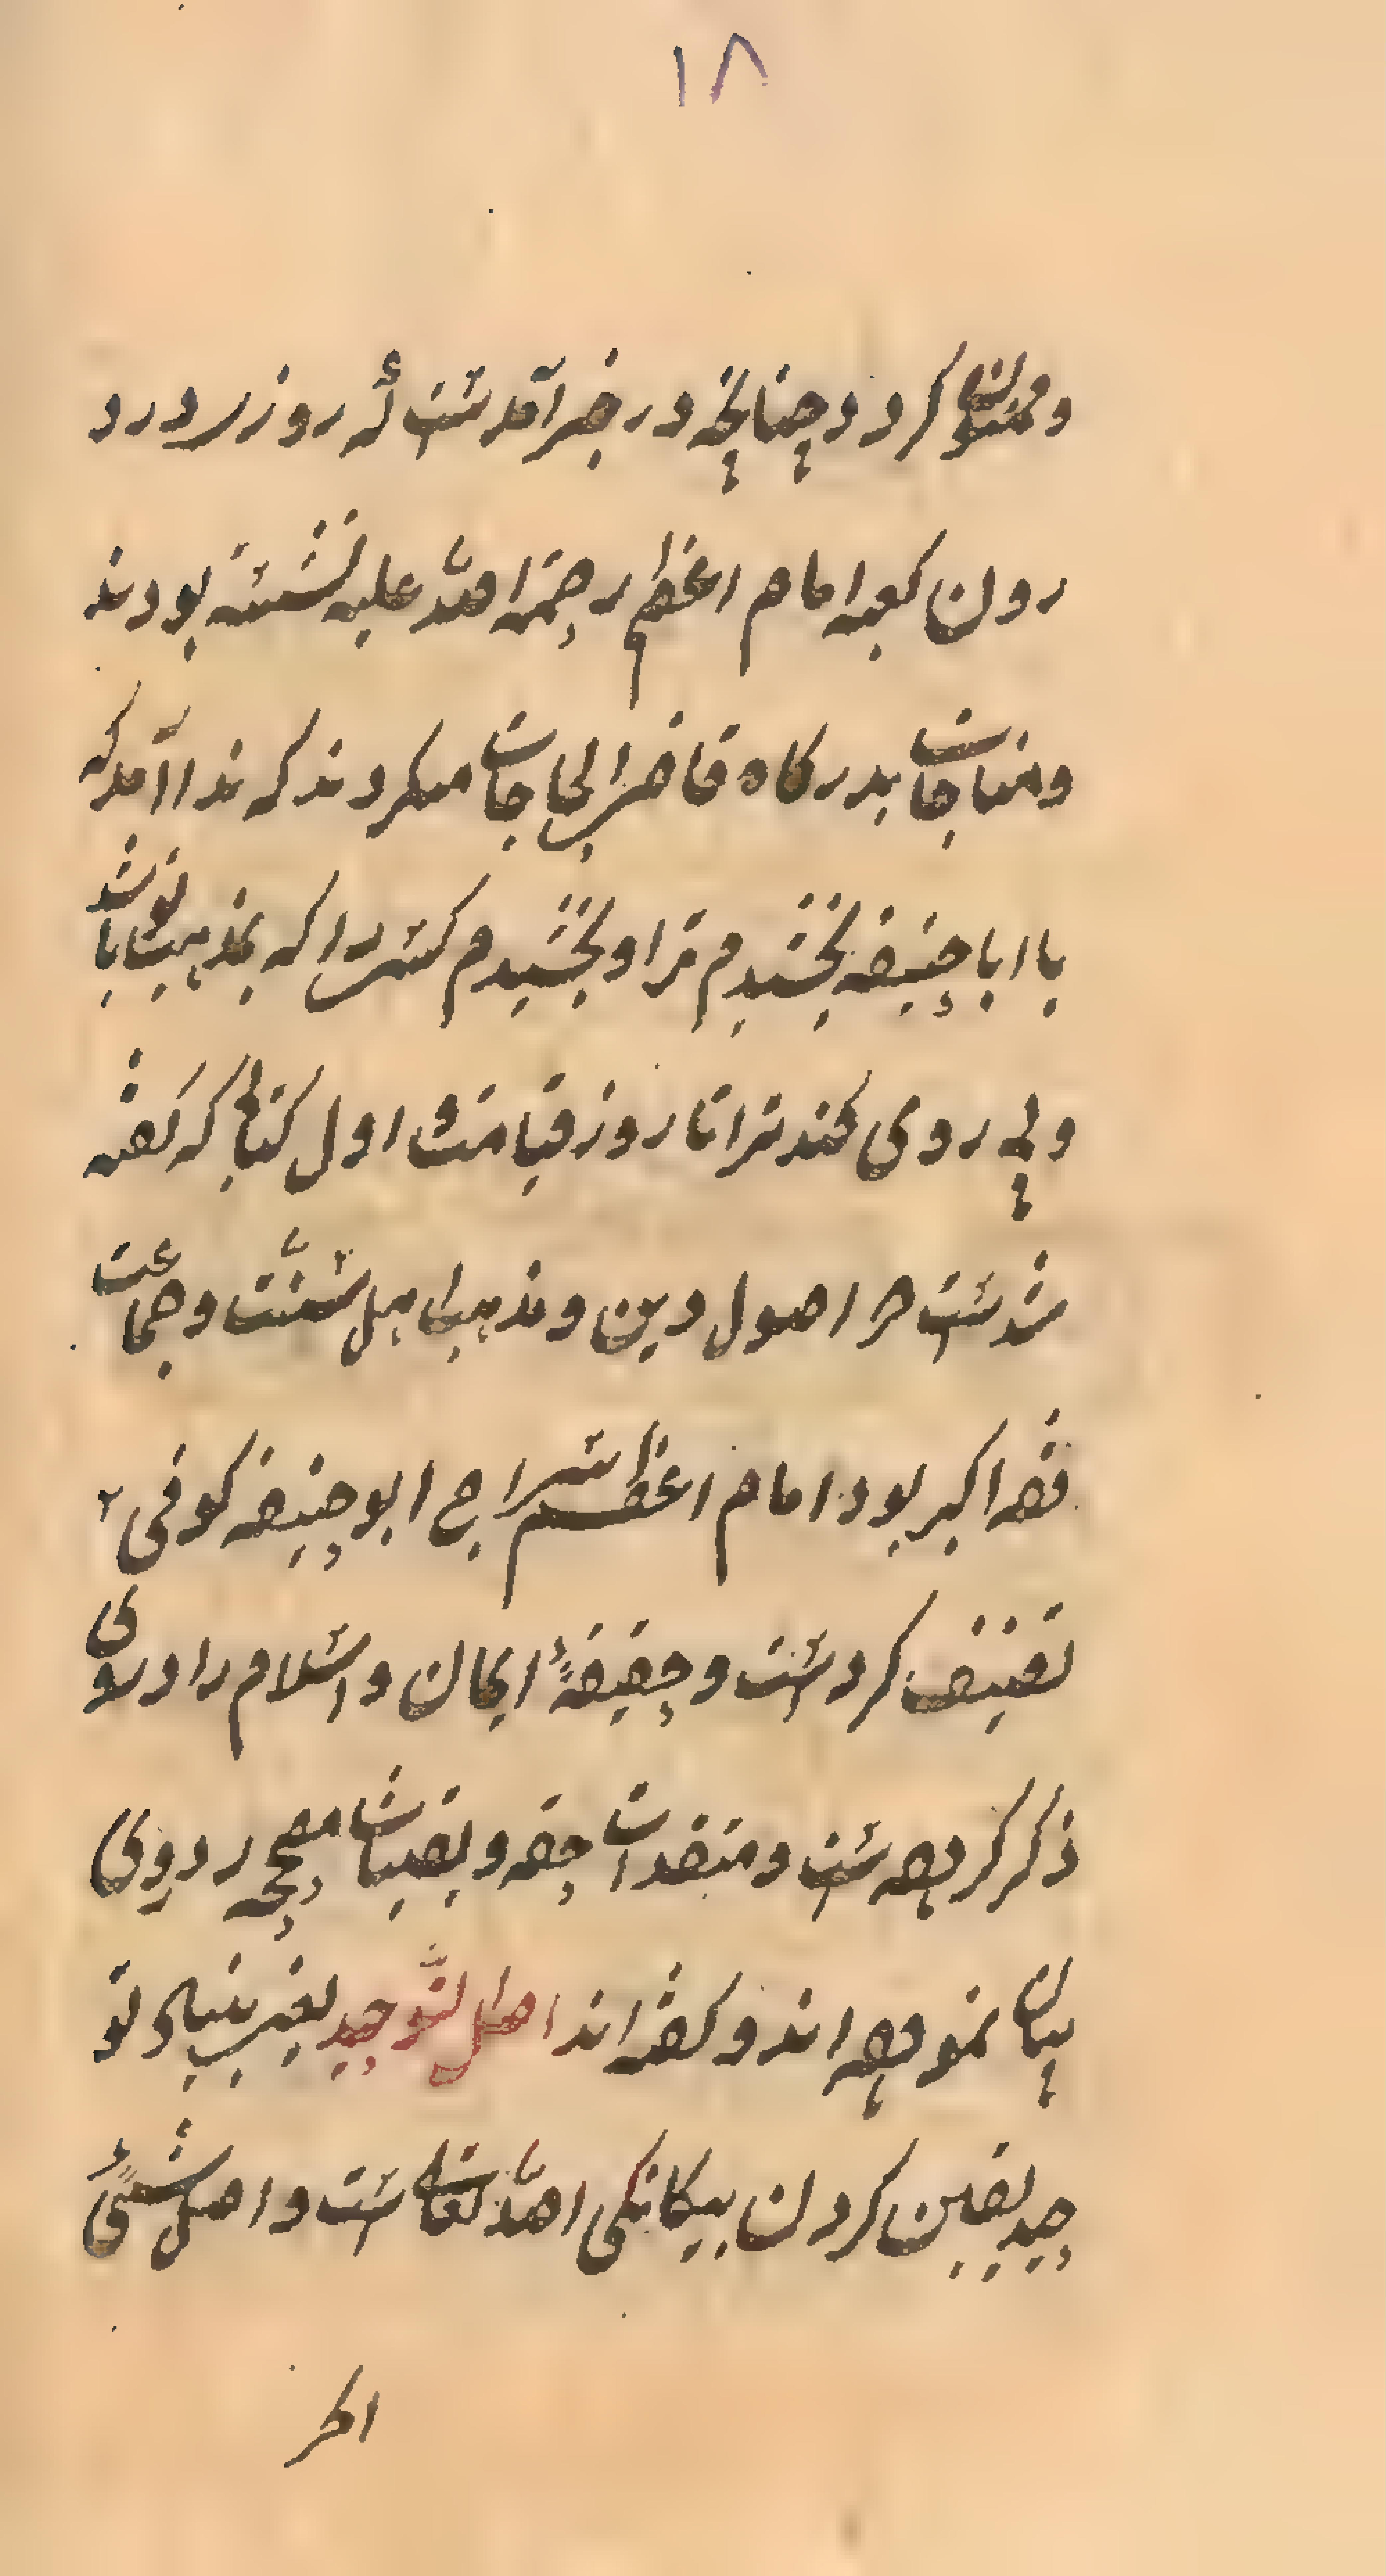 ۱۸
و ممنون کردد چنانچه در خبر آمدست که روز سردرد
رون کعبه امام اعظم رحمة الله علیه نشسته بودند
و مناجات بدرکاه قاضی الحاجات میکردند که ندا آمد که
یا ابا حنیفه بخشیدم ترا و بخشیدم کسی را که بمذهب تو باشد
و پی روی کند ترا تا روز قیامت و اول کتابی که کفته
شدست در اصول دین و مذهب اهل سنّت و جماعت
فقه اکبر بود امام اعظم سراج ابو حنیفه کوفی
تصنیف کردست و حقیقة ایمان و اسلام را در وی
ذکر کرده ست و معتقدات حقه و یقینات صحیحه در وی
بیان نموده اند و کفته اند اصل التّوحید یعنی بنیاد تو
حید یقین کردن بیکانکی الله تعالی ست و اصل شیئ
اکر